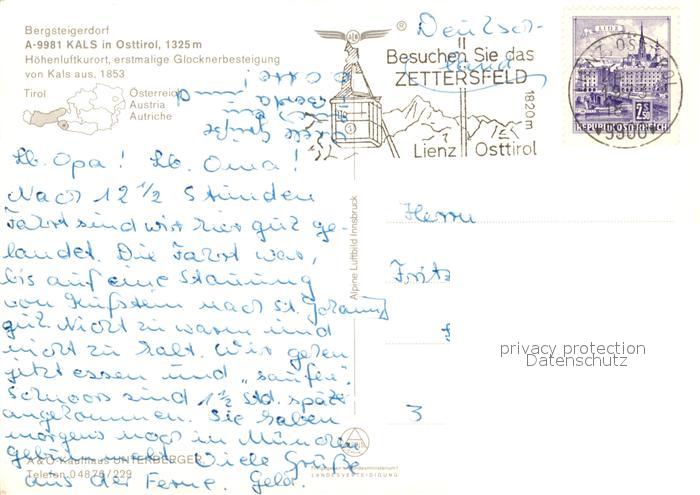 Bergsteigerdorf
A-9981 KALS in Osttirol, 1325m
Höhenluftkurort, erstmalige Glocknerbesteigung
von Kals aus, 1853
Tirol
Österreich
Austria
Autriche
®
Besuchen Sie das
ZETTERSFELD
1820m
Lienz Osttirol
LINZ
9900
2.50
REPUBLIK ÖSTERREICH
Deutsch-
land
Lb. Opa! Lb. Oma!
Nach 12 1/2 Stunden
Fahrt sind wir hier gut ge-
landet. Die Fahrt war,
bis auf eine Stauung
von Kufstein nach St. Johann
gut. Nicht zu warm und
nicht zu kalt. Wir gehen
jetzt essen und „saufen".
Schnoors sind 1 1/2 Std. später
angekommen. Sie haben
morgens noch in München
Viele Grüße
aus der Ferne.
Alpine Luftbild Innsbruck
Herrn
Fritz
3
privacy protection
Datenschutz
A & O Kaufhaus UNTERBERGER
Telefon 04876/229
LANDESVERTEIDIGUNG